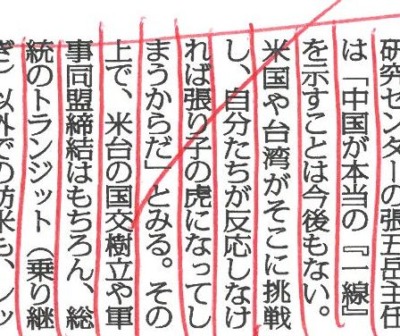 研究センターの張五岳主任
は「中国が本当の『一線』
を示すことは今後もない。
米国や台湾がそこに挑戦
し、自分たちが反応しなけ
れば張り子の虎になってし
まうからだ」とみる。その
上で、米台の国交樹立や軍
事同盟締結はもちろん、総
統のトランジット（乗り継
ぎ）以外での訪米も、レッ